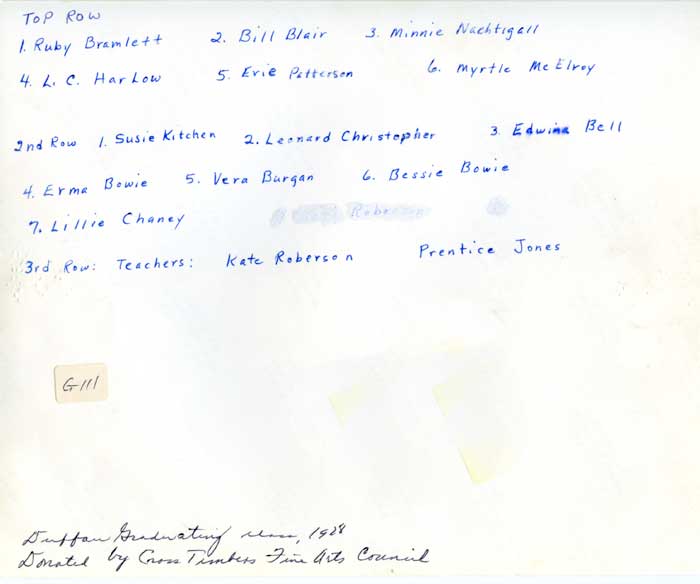 TOP ROW
1. Ruby Bramlett 2. Bill Blair 3. Minnie Nachtigall
4. L. C. Harlow 5. Evie Patterson 6. Myrtle McElroy
2nd Row 1. Susie Kitchen 2. Leonard Christopher 3. Edwina Bell
4. Erma Bowie 5. Vera Burgan 6. Bessie Bowie
7. Lillie Chaney Roberson
3rd Row: Teachers: Kate Roberson Prentice Jones
G111
Duffau Graduating class, 1928
Donated by Cross Timbers Fine Arts Council